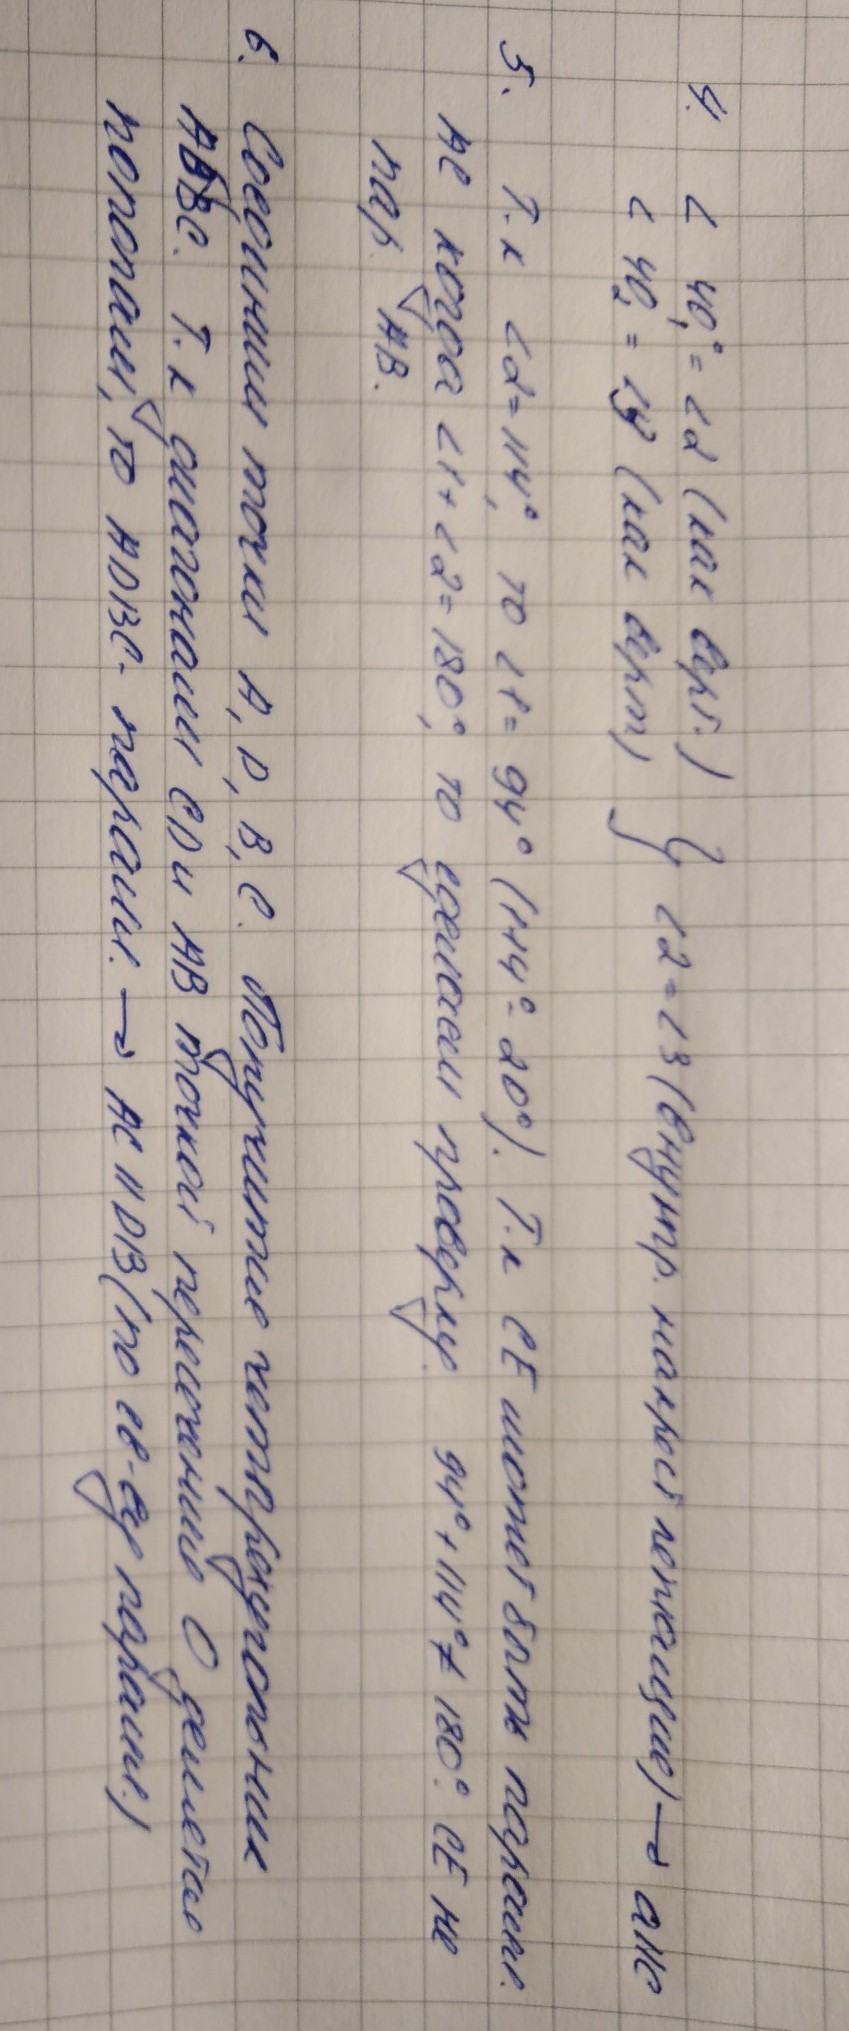 4. ∠ 40₁° = ∠2 (как верт.) }
∠ 40₂ = ∠3 (как верт) } ∠2 = ∠3 (внутр. накрест лежащие) → a||c
5. Т.к ∠2 = 114°, то ∠1 = 94° (114° - 20°). Т.к CE может быть паралл.
AC когда ∠1 + ∠2 = 180°, то сделаем проверку. 94° + 114° ≠ 180°. CE не
пар. AB.
6. Соединим точки A, D, B, C. Получится четырехугольник
ADBC. Т.к диагонали CD и AB точкой пересечения O делятся
пополам, то ADBC - паралл. → AC || DB (по св-ву паралл.)